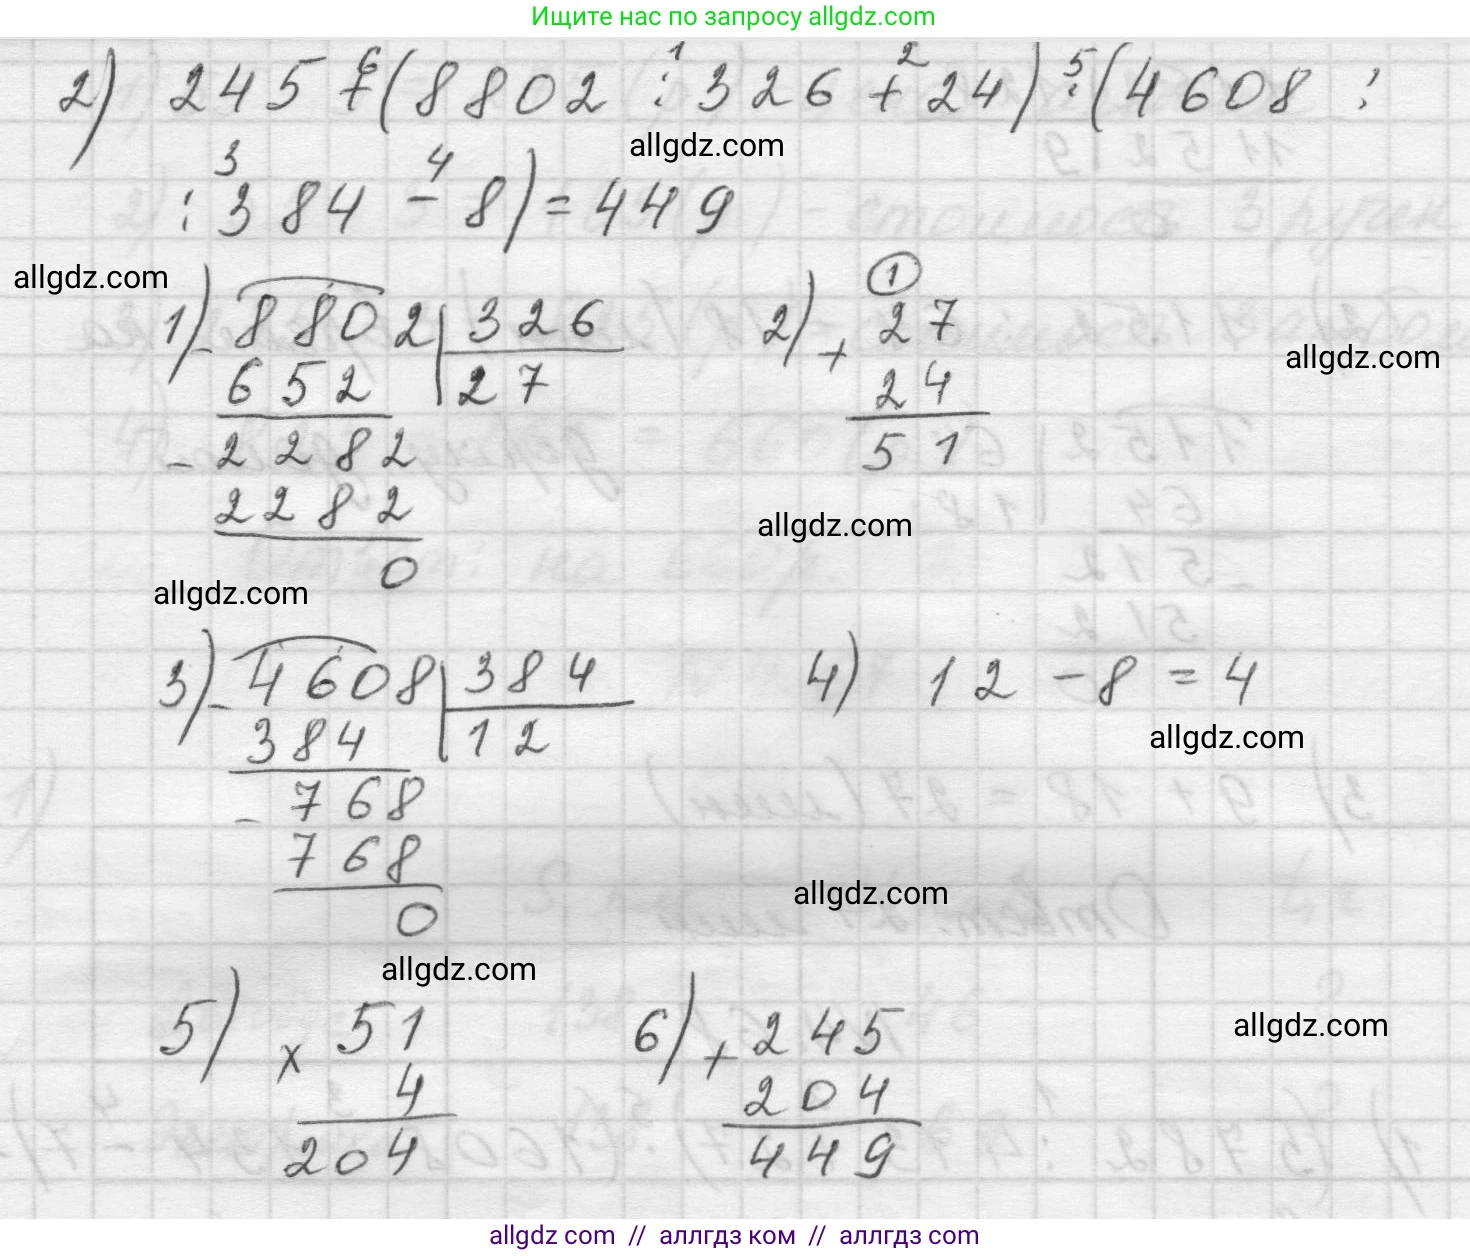 Ищите нас по запросу allgdz.com
6 1 2 5
2) 245 + (8802 : 326 + 24) · (4608 :
allgdz.com
3 4
: 384 - 8) = 449
allgdz.com
1
1) - 8802 326 2) + 27
allgdz.com
652 27 24
- 2282 51
2282
allgdz.com
0
allgdz.com
3) - 4608 384 4) 12 - 8 = 4
384 12
allgdz.com
- 768
768
allgdz.com
0
allgdz.com
5) x 51 6) + 245
allgdz.com
4 204
204 449
allgdz.com // аллгдз ком // аллгдз com